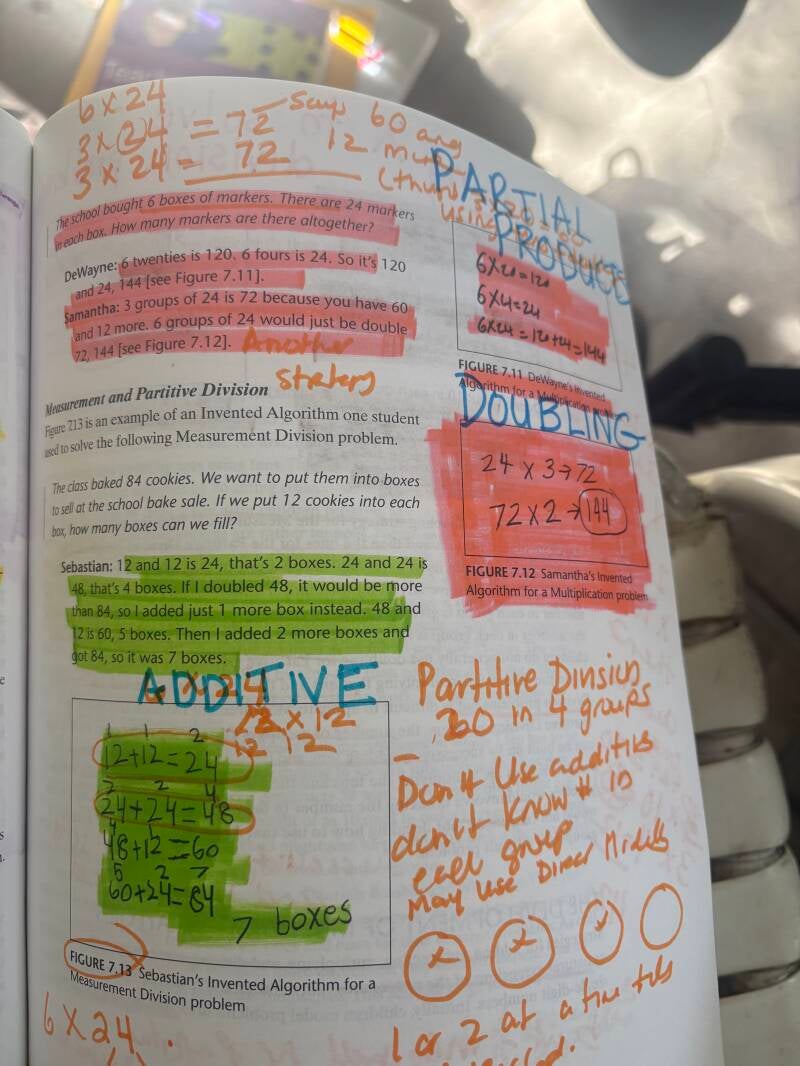 6 x 24
3 x 24 = 72 Says 60 and
3 x 24 = 72 12
The school bought 6 boxes of markers. There are 24 markers
in each box. How many markers are there altogether?
DeWayne: 6 twenties is 120. 6 fours is 24. So it's 120
and 24, 144 [see Figure 7.11].
Samantha: 3 groups of 24 is 72 because you have 60
and 12 more. 6 groups of 24 would just be double
72, 144 [see Figure 7.12]. Another
strategy
PARTIAL
PRODUCTS
6x20=120
6x4=24
6x24=120+24=144
FIGURE 7.11 DeWayne's Invented
Algorithm for a Multiplication problem
DOUBLING
24 x 3→72
72 x 2→144
FIGURE 7.12 Samantha's Invented
Algorithm for a Multiplication problem
Measurement and Partitive Division
Figure 713 is an example of an Invented Algorithm one student
used to solve the following Measurement Division problem.
The class baked 84 cookies. We want to put them into boxes
to sell at the school bake sale. If we put 12 cookies into each
box, how many boxes can we fill?
Sebastian: 12 and 12 is 24, that's 2 boxes. 24 and 24 is
48, that's 4 boxes. If I doubled 48, it would be more
than 84, so I added just 1 more box instead. 48 and
12 is 60, 5 boxes. Then I added 2 more boxes and
got 84, so it was 7 boxes.
ADDITIVE
x 12
12 12
1 1 2
12+12=24
2 2 4
24+24=48
4 1
48+12=60
5 2 7
60+24=84
7 boxes
FIGURE 7.13 Sebastian's Invented Algorithm for a
Measurement Division problem
6 x 24
Partitive Division
in 4 groups
Don't use additive
don't know # in
each group
May use Direct Models
1 or 2 at a time